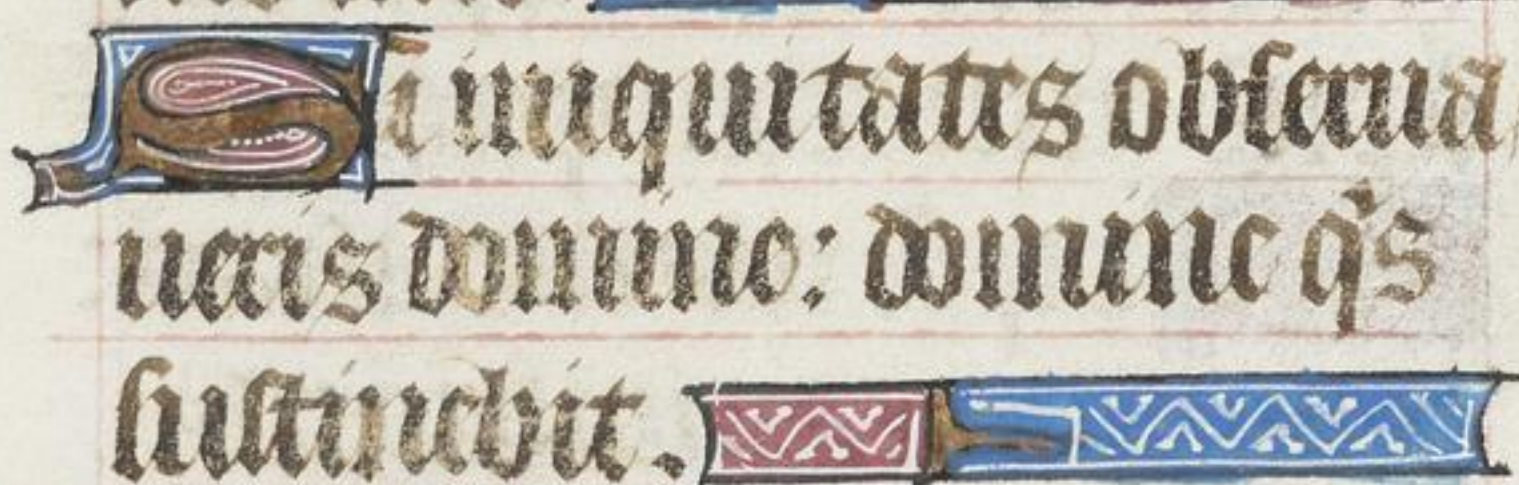 Si iniquitates obserua
ueris domine: domine q's
sustinebit.